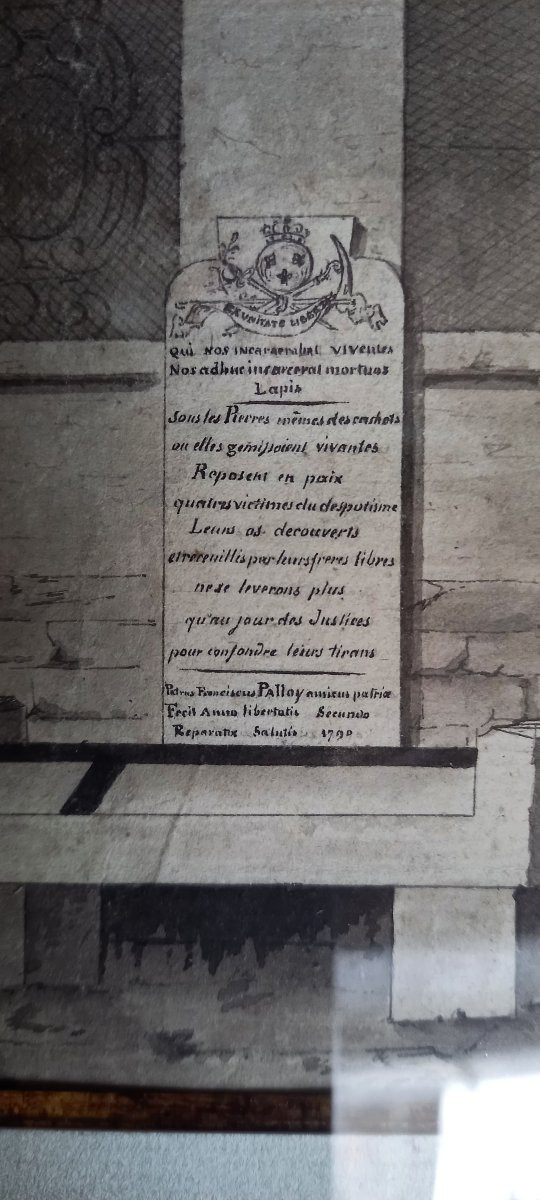 EX UNITATE LIBERTAS
Qui nos incarcerabat viventes
Nos adhuc incarcerat mortuos
Lapis
Sous les Pierres mêmes des cachots
ou elles gemissoient vivantes
Reposent en paix
quatres victimes du despotisme
Leurs os decouverts
et receuillis par leurs freres libres
ne se leverons plus
qu'au jour des Justices
pour confondre leurs tirans
Petrus Franciscus Palloy amicus patriæ
Fecit Anno libertatis Secundo
Reparatæ Salutis 1790